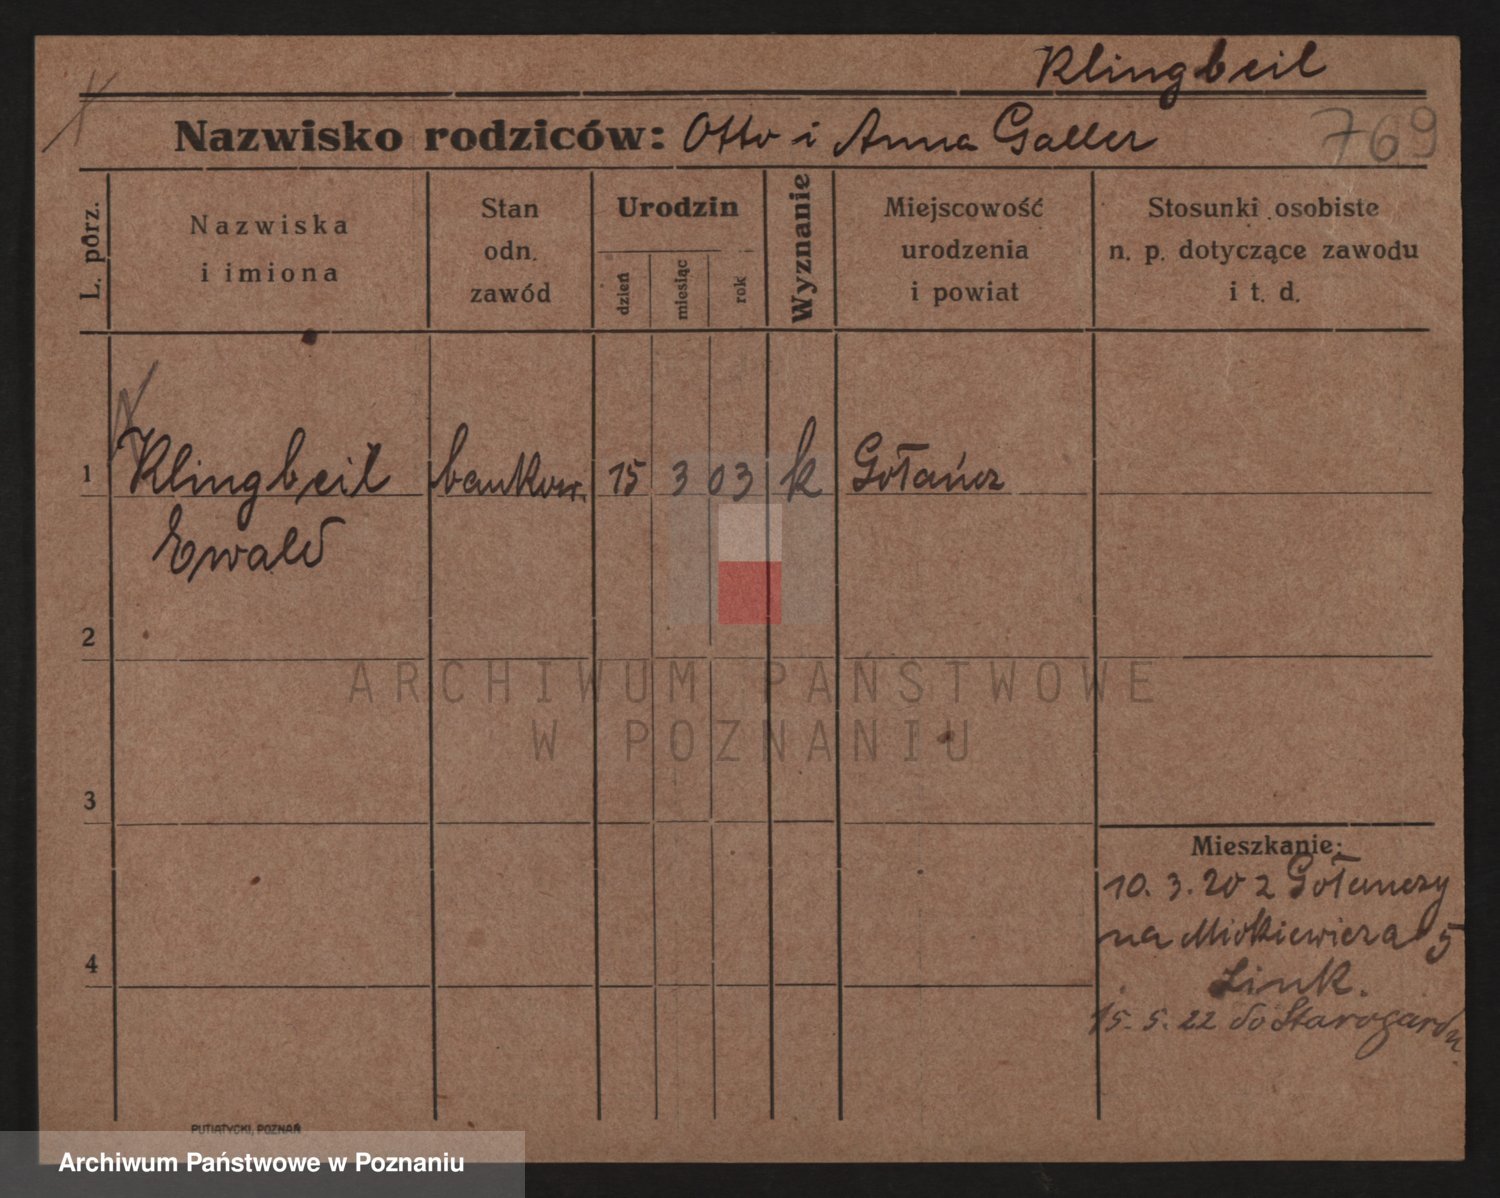 Klingbeil
Nazwisko rodziców: Otto i Anna Galler
769
L. porz.
Nazwiska
i imiona
Stan
odn.
zawód
Urodzin
dzień
miesiąc
rok
Wyznanie
Miejscowość
urodzenia
i powiat
Stosunki osobiste
n. p. dotyczące zawodu
i t. d.
1 Klingbeil bankow. 15 3 03 k Gołańcz
Ewald
2
ARCHIWUM PAŃSTWOWE
W POZNANIU
3
Mieszkanie:
10. 3. 20 z Gołanczy
na Mickiewicza 5
Link.
4
15. 5. 22 do Starogardu
PUTIATYCKI, POZNAŃ
Archiwum Państwowe w Poznaniu